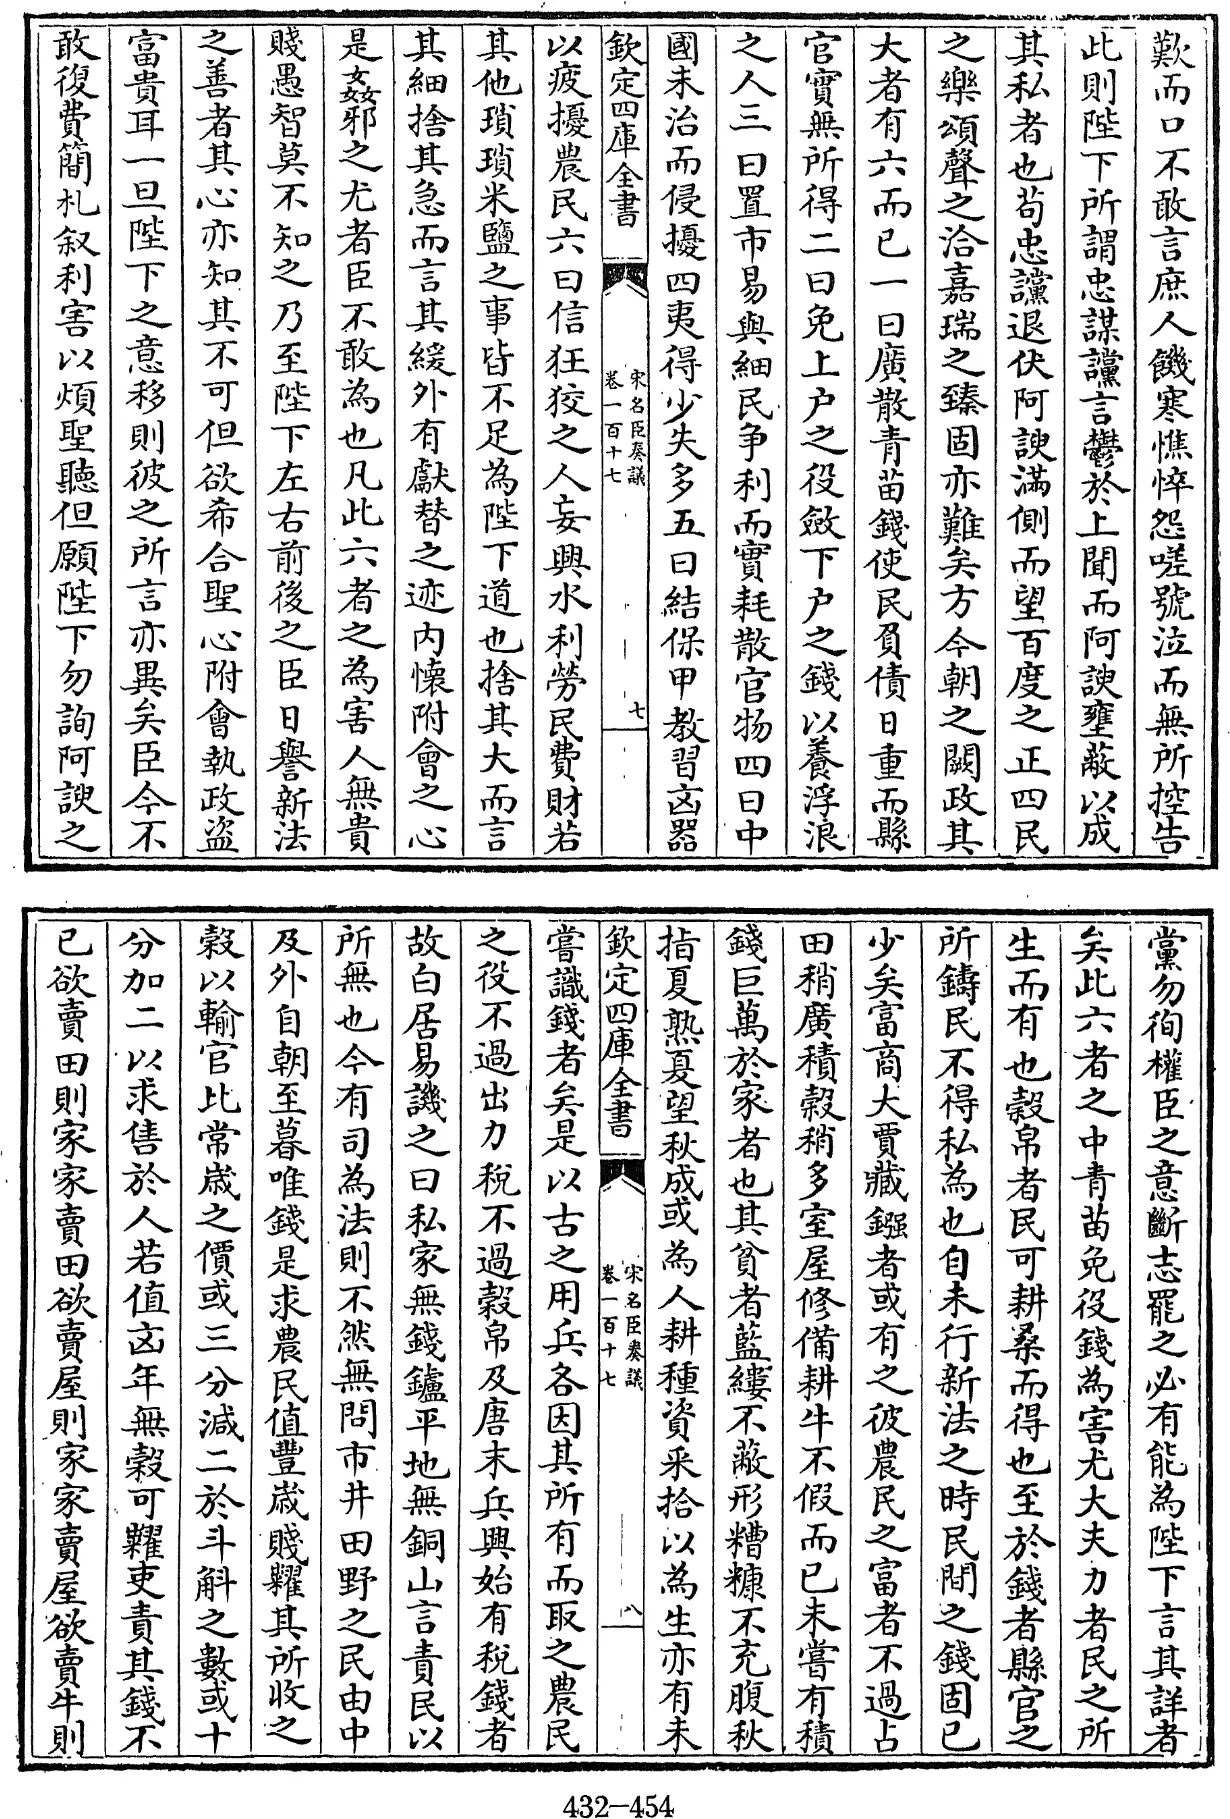 歎而口不敢言庶人饑寒憔悴怨嗟號泣而無所控告
此則陛下所謂忠謀讜言鬱於上聞而阿諛壅蔽以成
其私者也苟忠讜退伏阿諛滿側而望百度之正四民
之樂頌聲之洽嘉瑞之臻固亦難矣方今朝之闕政其
大者有六而已一曰廣散青苗錢使民負債日重而縣
官實無所得二曰免上户之役斂下户之錢以養浮浪
之人三曰置市易與細民争利而實耗散官物四曰中
國未治而侵擾四夷得少失多五曰結保甲教習凶器
欽定四庫全書
宋名臣奏議
卷一百十七
七
以疲擾農民六曰信狂狡之人妄興水利勞民費財若
其他瑣瑣米鹽之事皆不足為陛下道也捨其大而言
其細捨其急而言其緩外有獻替之迹内懷附會之心
是姦邪之尤者臣不敢為也凡此六者之為害人無貴
賤愚智莫不知之乃至陛下左右前後之臣日譽新法
之善者其心亦知其不可但欲希合聖心附會執政盜
富貴耳一旦陛下之意移則彼之所言亦異矣臣今不
敢復費簡札叙利害以煩聖聽但願陛下勿詢阿諛之
黨勿徇權臣之意斷志罷之必有能為陛下言其詳者
矣此六者之中青苗免役錢為害尤大夫力者民之所
生而有也穀帛者民可耕桑而得也至於錢者縣官之
所鑄民不得私為也自未行新法之時民間之錢固已
少矣富商大賈藏鏹者或有之彼農民之富者不過占
田稍廣積穀稍多室屋修備耕牛不假而已未嘗有積
錢巨萬於家者也其貧者藍縷不蔽形糟糠不充腹秋
指夏熟夏望秋成或為人耕種資采拾以為生亦有未
欽定四庫全書
宋名臣奏議
卷一百十七
八
嘗識錢者矣是以古之用兵各因其所有而取之農民
之役不過出力稅不過穀帛及唐末兵興始有稅錢者
故白居易譏之曰私家無錢鑪平地無銅山言責民以
所無也今有司為法則不然無問市井田野之民由中
及外自朝至暮唯錢是求農民值豐歲賤糶其所收之
穀以輸官比常歲之價或三分減二於斗斛之數或十
分加二以求售於人若值凶年無穀可糶吏責其錢不
已欲賣田則家家賣田欲賣屋則家家賣屋欲賣牛則
432—454